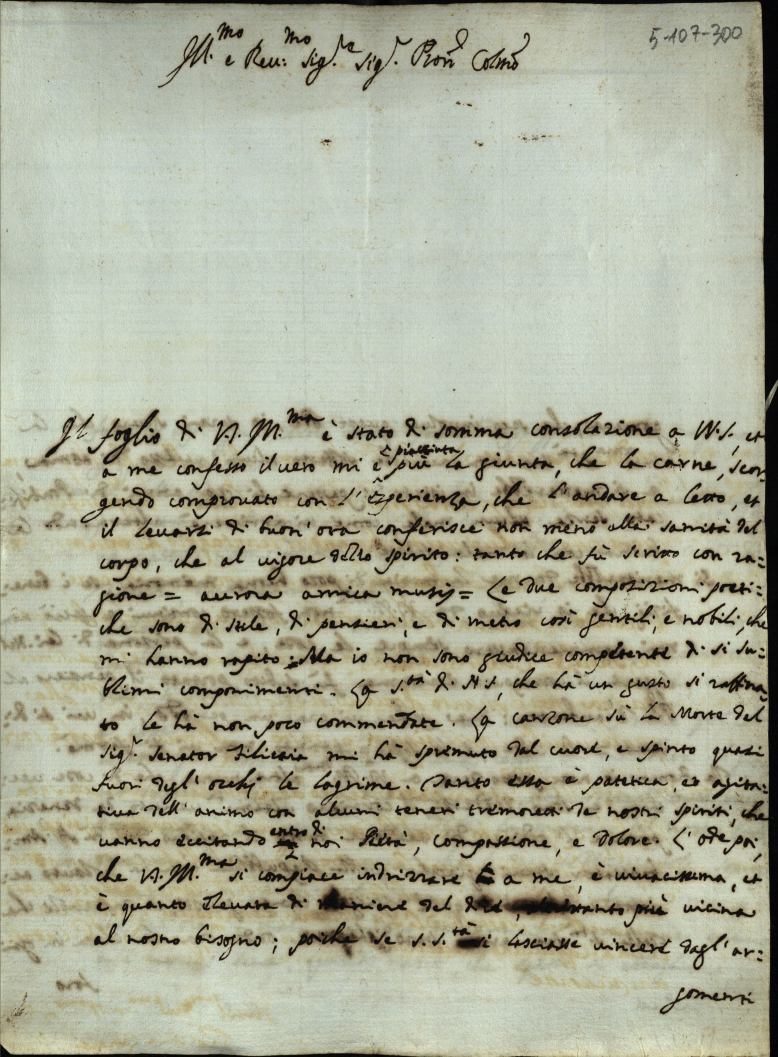 5-107-300
Ill.mo e Reu:mo Sig.r Sig.r Pron Colmo
Il foglio di V.S. Ill.ma è stato di somma consolazione a N.S., et
a me confesso il uero mi è piaciuta più la giunta, che la carne, scor-
gendo comprouato con l'Esperienza, che l'andare a letto, et
il leuarsi di buon'ora conferisce non meno alla sanità del
corpo, che al uigore dello spirito: tanto che fù scritto con ra=
gione = aurora amica musis = Le due composizioni poeti=
che sono di stile, di pensieri, e di metro così gentili, e nobili, che
mi hanno rapito. Ma io non sono giudice competente di si su=
blimi componimenti. La S.tà di N.S., che hà un gusto si raffina=
to le hà non poco commendate. La canzone sù la Morte del
Sig.r Senator Filicaia mi hà spremuto dal cuore, e spinto quasi
fuori degl'occhi le lagrime. Tanto essa è patetica, et agita=
tiua dell'animo con alcuni teneri tremori de nostri spiriti, che
uanno eccitando entro di noi Pietà, compassione, e Dolore. L'ode poi,
che V.S. Ill.ma si compiace indrizzare a me, è uiuacissima, et
è quanto eleuata di maniere del dire, altrettanto più uicina
al nostro bisogno; poiche se S.S.tà si lasciasse uincere dagl'ar=
gomenti